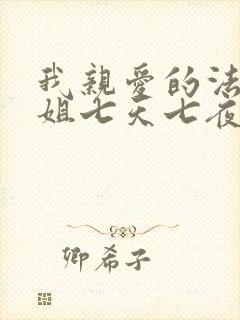 我親愛的法
姐七天七夜
卿希子